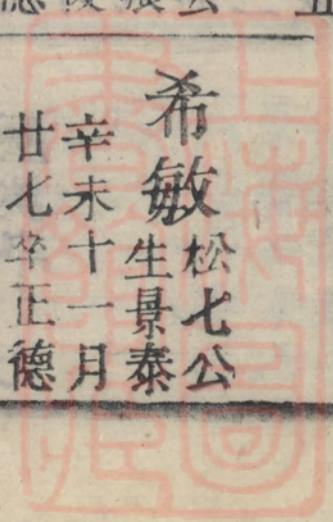 希敏松七公
生景泰
辛未十一月
廿七卒正德